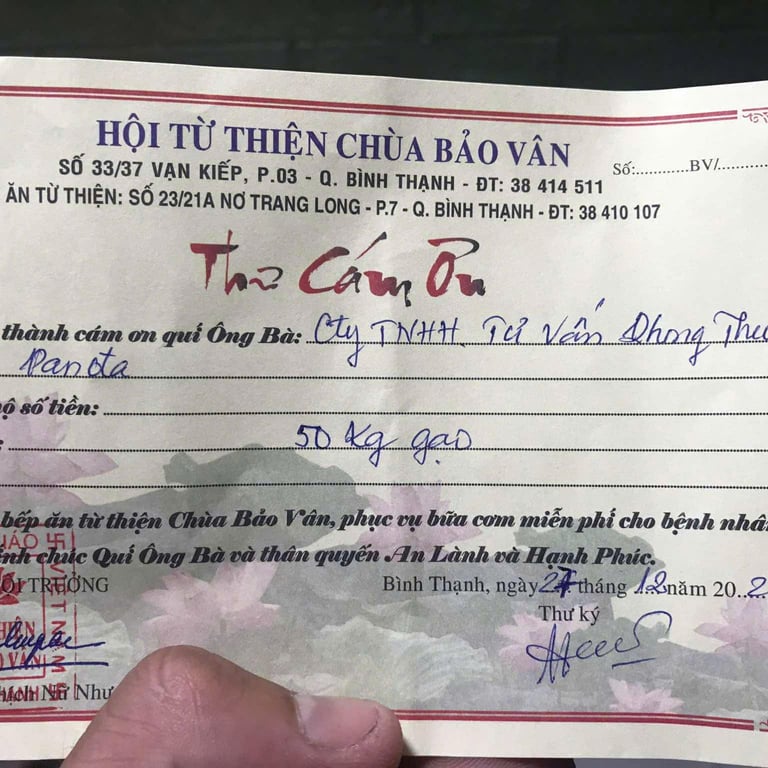 HỘI TỪ THIỆN CHÙA BẢO VÂN
Số:............BV/...........
SỐ 33/37 VẠN KIẾP, P.03 - Q. BÌNH THẠNH - ĐT: 38 414 511
ĂN TỪ THIỆN: SỐ 23/21A NƠ TRANG LONG - P.7 - Q. BÌNH THẠNH - ĐT: 38 410 107
Thư Cám Ơn
thành cám ơn quí Ông Bà: Cty TNHH Tư Vấn Phong Thu
Panota
ộ số tiền:
50 Kg gạo
bếp ăn từ thiện Chùa Bảo Vân, phục vụ bữa cơm miễn phí cho bệnh nhâ
ính chúc Quí Ông Bà và thân quyến An Lành và Hạnh Phúc.
ỘI TRƯỞNG
Bình Thạnh, ngày 27 tháng 12 năm 20..2
Thư ký
hích Nữ Như